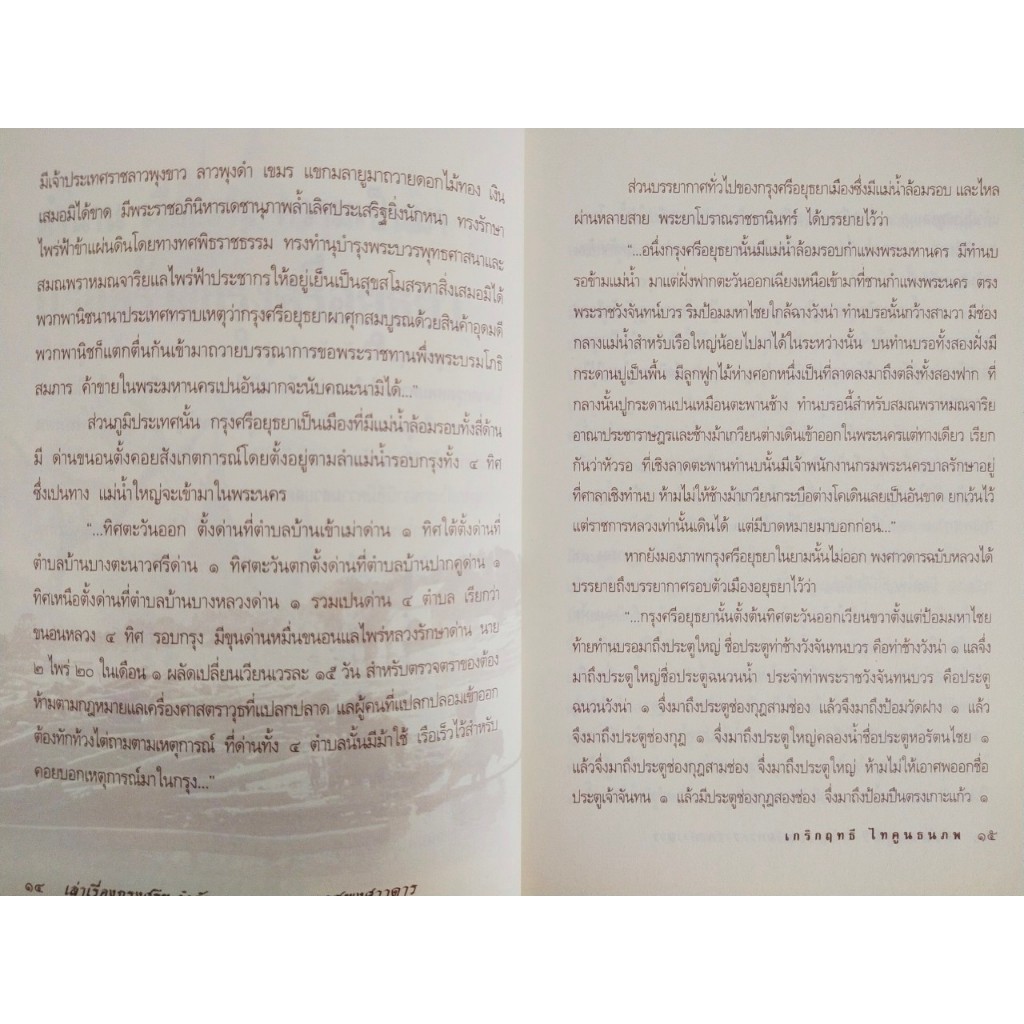 มีเจ้าประเทศราชลาวพุงขาว ลาวพุงดำ เขมร แขกมลายูมาถวายดอกไม้ทอง เงิน
เสมอมิได้ขาด มีพระราชอภินิหารเดชานุภาพล้ำเลิศประเสริฐยิ่งนักหนา ทรงรักษา
ไพร่ฟ้าข้าแผ่นดินโดยทางทศพิธราชธรรม ทรงทำนุบำรุงพระบวรพุทธศาสนาและ
สมณพราหมณจาริยแลไพร่ฟ้าประชากรให้อยู่เย็นเป็นสุขสโมสรหาสิ่งเสมอมิได้
พวกพานิชนานาประเทศทราบเหตุว่ากรุงศรีอยุธยาผาศุกสมบูรณด้วยสินค้าอุดมดี
พวกพานิชก็แตกตื่นกันเข้ามาถวายบรรณาการขอพระราชทานพึ่งพระบรมโภธิ
สมภาร ค้าขายในพระมหานครเปนอันมากจะนับคณะนามิได้..."
ส่วนภูมิประเทศนั้น กรุงศรีอยุธยาเป็นเมืองที่มีแม่น้ำล้อมรอบทั้งสี่ด้าน
มี ด่านขนอนตั้งคอยสังเกตการณ์โดยตั้งอยู่ตามลำแม่น้ำรอบกรุงทั้ง ๔ ทิศ
ซึ่งเปนทาง แม่น้ำใหญ่จะเข้ามาในพระนคร
"...ทิศตะวันออก ตั้งด่านที่ตำบลบ้านเข้าเม่าด่าน ๑ ทิศใต้ตั้งด่านที่
ตำบลบ้านบางตะนาวศรีด่าน ๑ ทิศตะวันตกตั้งด่านที่ตำบลบ้านปากคูด่าน ๑
ทิศเหนือตั้งด่านที่ตำบลบ้านบางหลวงด่าน ๑ รวมเปนด่าน ๔ ตำบล เรียกว่า
ขนอนหลวง ๔ ทิศ รอบกรุง มีขุนด่านหมื่นขนอนแลไพร่หลวงรักษาด่าน นาย
๒ ไพร่ ๒๐ ในเดือน ๑ ผลัดเปลี่ยนเวียนเวรละ ๑๕ วัน สำหรับตรวจตราของต้อง
ห้ามตามกฎหมายแลเครื่องศาสตราวุธที่แปลกปลาด แลผู้คนที่แปลกปลอมเข้าออก
ต้องทักท้วงไต่ถามตามเหตุการณ์ ที่ด่านทั้ง ๔ ตำบลนั้นมีม้าใช้ เรือเร็วไว้สำหรับ
คอยบอกเหตุการณ์มาในกรุง..."
๑๔ เล่าเรื่อง
ส่วนบรรยากาศทั่วไปของกรุงศรีอยุธยาเมืองซึ่งมีแม่น้ำล้อมรอบ และไหล
ผ่านหลายสาย พระยาโบราณราชธานินทร์ ได้บรรยายไว้ว่า
"...อนึ่งกรุงศรีอยุธยานั้นมีแม่น้ำล้อมรอบกำแพงพระมหานคร มีทำนบ
รอข้ามแม่น้ำ มาแต่ฝั่งฟากตะวันออกเฉียงเหนือเข้ามาที่ชานกำแพงพระนคร ตรง
พระราชวังจันทน์บวร ริมป้อมมหาไชยใกล้ฉางวังน่า ทำนบรอนั้นกว้างสามวา มีช่อง
กลางแม่น้ำสำหรับเรือใหญ่น้อยไปมาได้ในระหว่างนั้น บนทำนบรอทั้งสองฝั่งมี
กระดานปูเป็นพื้น มีลูกฟูกไม้ห่างศอกหนึ่งเป็นที่ลาดลงมาถึงตลิ่งทั้งสองฟาก ที่
กลางนั้นปูกระดานเปนเหมือนตะพานช้าง ทำนบรอนี้สำหรับสมณพราหมณจาริย
อาณาประชาราษฎรและช้างม้าเกวียนต่างเดินเข้าออกในพระนครแต่ทางเดียว เรียก
กันว่าหัวรอ ที่เชิงลาดตะพานทำนบนั้นมีเจ้าพนักงานกรมพระนครบาลรักษาอยู่
ที่ศาลาเชิงทำนบ ห้ามไม่ให้ช้างม้าเกวียนกระบือต่างโคเดินเลยเป็นอันขาด ยกเว้นไว้
แต่ราชการหลวงเท่านั้นเดินได้ แต่มีบาดหมายมาบอกก่อน..."
หากยังมองภาพกรุงศรีอยุธยาในยามนั้นไม่ออก พงศาวดารฉบับหลวงได้
บรรยายถึงบรรยากาศรอบตัวเมืองอยุธยาไว้ว่า
"...กรุงศรีอยุธยานั้นตั้งต้นทิศตะวันออกเวียนขวาตั้งแต่ป้อมมหาไชย
ท้ายทำนบรอมาถึงประตูใหญ่ ชื่อประตูท่าช้างวังจันทนบวร คือท่าช้างวังน่า ๑ แลจึ่ง
มาถึงประตูใหญ่ชื่อประตูฉนวนน้ำ ประจำท่าพระราชวังจันทนบวร คือประตู
ฉนวนวังน่า ๑ จึ่งมาถึงประตูช่องกุฏสามช่อง แล้วจึ่งมาถึงป้อมวัดฝาง ๑ แล้ว
จึงมาถึงประตูช่องกุฎ ๑ จึ่งมาถึงประตูใหญ่คลองน้ำชื่อประตูหอรัตนไชย ๑
แล้วจึ่งมาถึงประตูช่องกุฎสามช่อง จึ่งมาถึงประตูใหญ่ ห้ามไม่ให้เอาศพออกชื่อ
ประตูเจ้าจันทน ๑ แล้วมีประตูช่องกุฎสองช่อง จึ่งมาถึงป้อมปืนตรงเกาะแก้ว ๑
เกริกฤทธิ์ ไทคูนธนภพ ๑๕